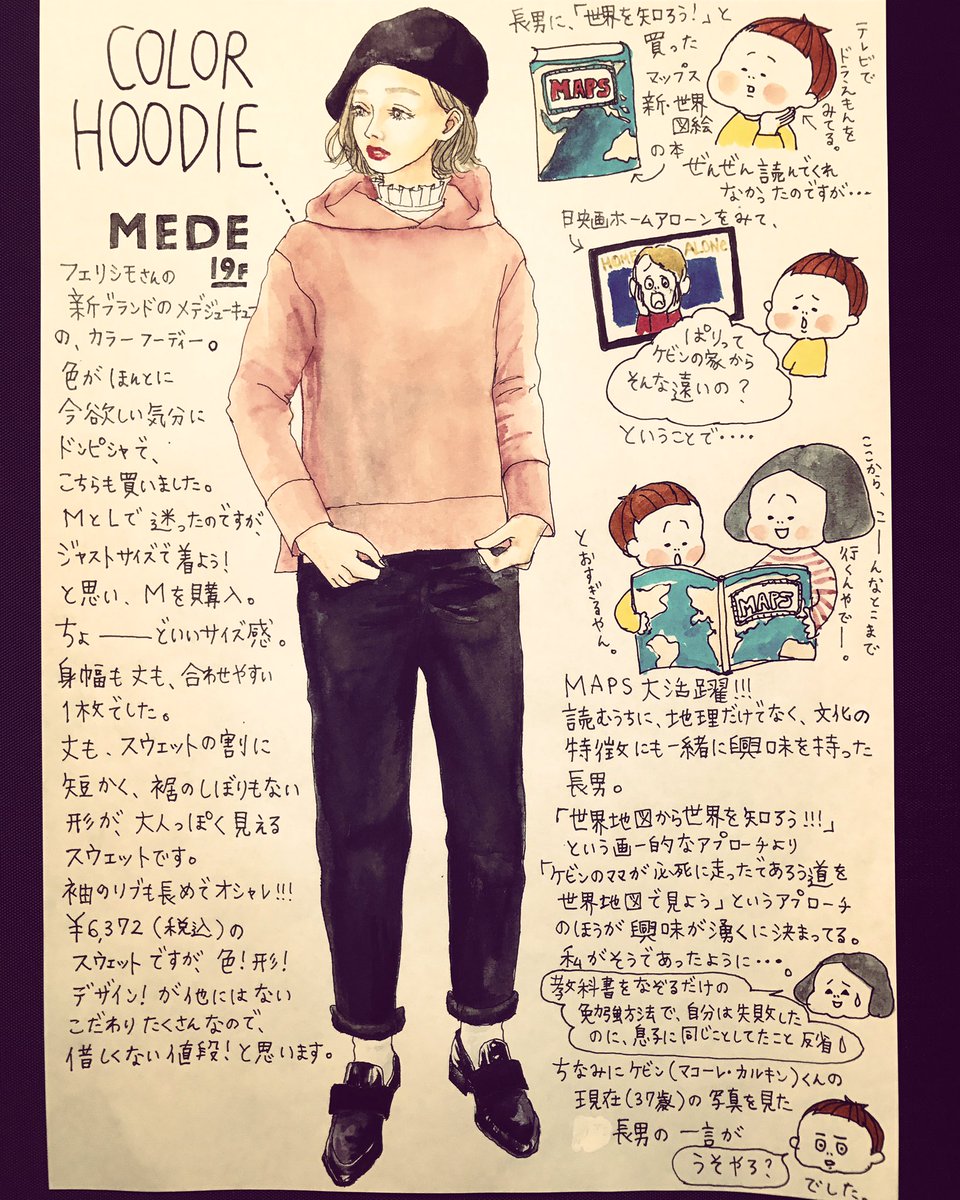 COLOR
HOODIE
MEDE
19F
フェリシモさんの
新ブランドのメデジューキュー
の、カラーフーディー。
色がほんとに
今欲しい気分に
ドンピシャで、
こちらも買いました。
MとLで迷ったのですが、
ジャストサイズで着よう!
と思い、Mを購入。
ちょーーどいいサイズ感。
身幅も丈も、合わせやすい
1枚でした。
丈も、スウェットの割に
短かく、裾のしぼりもない
形が、大人っぽく見える
スウェットです。
袖のリブも長めでオシャレ!!!
¥6,372(税込)の
スウェットですが、色!形!
デザイン!が他にはない
こだわりたくさんなので、
惜しくない値段!と思います。
長男に、「世界を知ろう!」と
買った
マップス
新・世界
図絵
の本
MAPS
テレビで
ドラえもんを
みてる。
ぜんぜん読んでくれ
なかったのですが…
日映画ホームアローンをみて、
HOME ALONE
ぱりって
ケビンの家から
そんな遠いの?
ということで‥‥
ここから、
こーーんなとこまで
行くんやでー。
とおすぎるやん。
MAPS
MAPS大活躍!!!
読むうちに、地理だけでなく、文化の
特徴にも一緒に興味を持った
長男。
「世界地図から世界を知ろう!!!」
という画一的なアプローチより
「ケビンのママが必死に走ったであろう道を
世界地図で見よう」というアプローチ
のほうが興味が湧くに決まってる。
私がそうであったように…
教科書をなぞるだけの
勉強方法で、自分は失敗した
のに、息子に同じことしてたこと反省
ちなみにケビン(マコーレ・カルキン)くんの
現在(37歳)の写真を見た
長男の一言が
うそやろ?
でした。